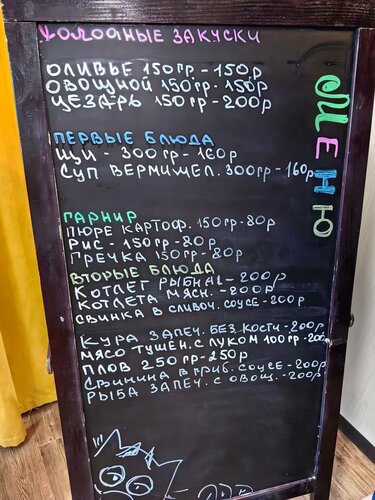 Холодные закуски
Меню
Оливье 150гр. - 150р
Овощной 150гр. - 150р
Цезарь 150гр - 200р
Первые блюда
Щи - 300гр - 160р
Суп вермишел. 300гр - 160р
Гарнир
Пюре картоф. 150гр - 80р
Рис - 150гр - 80р
Гречка 150гр - 80р
Вторые блюда
Котлет рыбная - 200р
Котлета мясн. - 200р
Свинка в сливоч. соусе - 200р
Кура запеч. без кости - 200р
Мясо тушен. с луком 100гр - 200
Плов 250гр - 250р
Свинина в гриб. соусе - 200р
Рыба запеч. с овощ. - 200р